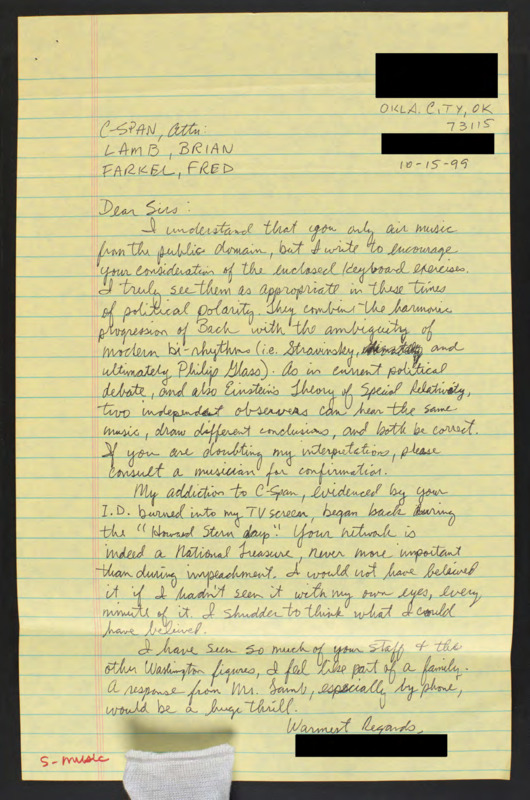 OKLA. CITY, OK
73115
C-SPAN, Attn:
LAMB, BRIAN
FARKEL, FRED
10-15-99
Dear Sirs:
I understand that you only air music
from the public domain, but I write to encourage
your consideration of the enclosed keyboard exercises.
I truly see them as appropriate in these times
of political polarity. They combine the harmonic
progression of Bach with the ambiguity of
modern bi-rhythms (i.e. Stravinsky, and
ultimately, Philip Glass). As in current political
debate, and also Einstein's Theory of Special Relativity,
two independent observers can hear the same
music, draw different conclusions, and both be correct.
If you are doubting my interpretations, please
consult a musician for confirmation.
My addiction to C-Span, evidenced by your
I.D. burned into my TV screen, began back during
the "Howard Stern day". Your network is
indeed a National Treasure, never more important
than during impeachment. I would not have beleived
it if I hadn't seen it with my own eyes, every
minute of it. I shudder to think what I could
have believed.
I have seen so much of your staff & the
other Washington figures, I feel like part of a family.
A response from Mr. Lamb, especially by phone,
would be a huge thrill.
Warmest Regards,
S-music